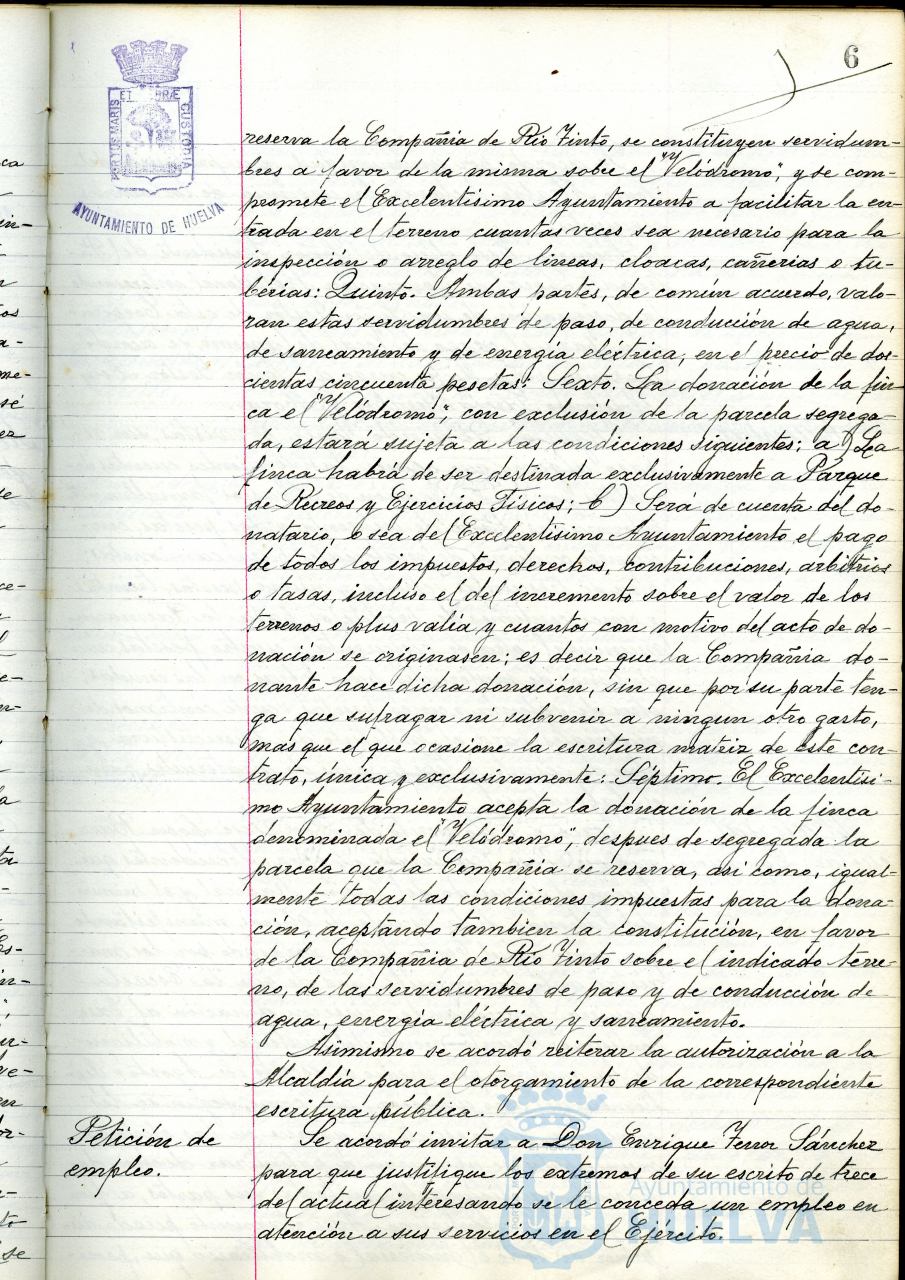 6
PORTUS MARIS ET TERRÆ CUSTODIA
AYUNTAMIENTO DE HUELVA
reserva la Compañia de Rio Tinto, se constituyen servidum-
bres a favor de la misma sobre el "Velódromo", y se com-
promete el Excelentísimo Ayuntamiento a facilitar la en-
trada en el terreno cuantas veces sea necesario para la
inspección o arreglo de lineas, cloacas, cañerias o tu-
berias: Quinto. Ambas partes, de común acuerdo, valo-
ran estas servidumbres de paso, de conducción de agua,
de saneamiento y de energía eléctrica, en el precio de dos-
cientas cincuenta pesetas: Sexto. La donación de la fin-
ca el "Velódromo", con exclusión de la parcela segrega-
da, estará sujeta a las condiciones siguientes: a) La
finca habrá de ser destinada exclusivamente a Parque
de Recreos y Ejercicios Físicos; b) Será de cuenta del do-
natario, o sea del Excelentísimo Ayuntamiento el pago
de todos los impuestos, derechos, contribuciones, arbitrios
o tasas, incluso el del incremento sobre el valor de los
terrenos o plus valia y cuantos con motivo del acto de do-
nación se originasen; es decir que la Compañia do-
nante hace dicha donación, sin que por su parte ten-
ga que sufragar ni subvenir a ningun otro gasto,
mas que el que ocasione la escritura matriz de este con-
trato, única y exclusivamente: Séptimo. El Excelentísi-
mo Ayuntamiento acepta la donación de la finca
denominada el "Velódromo", despues de segregada la
parcela que la Compañia se reserva, asi como, igual-
mente todas las condiciones impuestas para la dona-
ción, aceptando tambien la constitución, en favor
de la Compañia de Rio Tinto sobre el indicado terre-
no, de las servidumbres de paso y de conducción de
agua, energía eléctrica y saneamiento.
Asimismo se acordó reiterar la autorización a la
Alcaldía para el otorgamiento de la correspondiente
escritura pública.
Petición de
empleo.
Se acordó invitar a Don Enrique Ferror Sánchez
para que justifique los extremos de su escrito de trece
del actual interesando se le conceda un empleo en
atención a sus servicios en el Ejército.
Ayuntamiento de
HUELVA